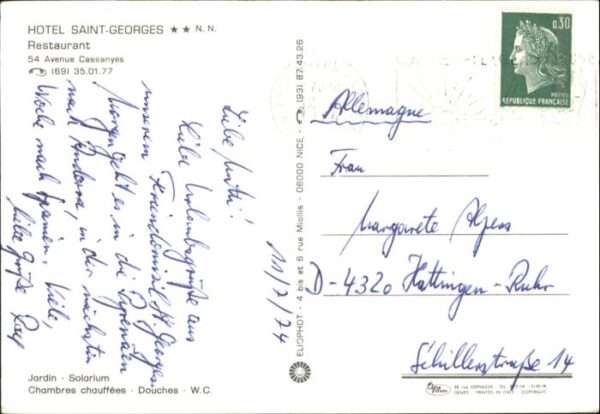 HOTEL SAINT-GEORGES ★★ N.N.
Restaurant
54 Avenue Cassanyes
(69) 35.01.77
Liebe
Liebe Urlaubsgrüße aus
unserem Feriendomizil St. Georges.
Morgen geht es in die Pyrenäen
nach Andorra, in der nächsten
Woche nach Spanien. Viele,
liebe Grüße
11/7/74
Jardin - Solarium
Chambres chauffées - Douches - W.C.
ELIOPHOT - 4 bis et 5 rue Miollis - 06000 NICE - (93) 87.43.26
0,30
POSTES
REPUBLIQUE FRANÇAISE
Allemagne
Frau
Margarete Alpers
D-4320 Hattingen-Ruhr
Schillerstraße 14